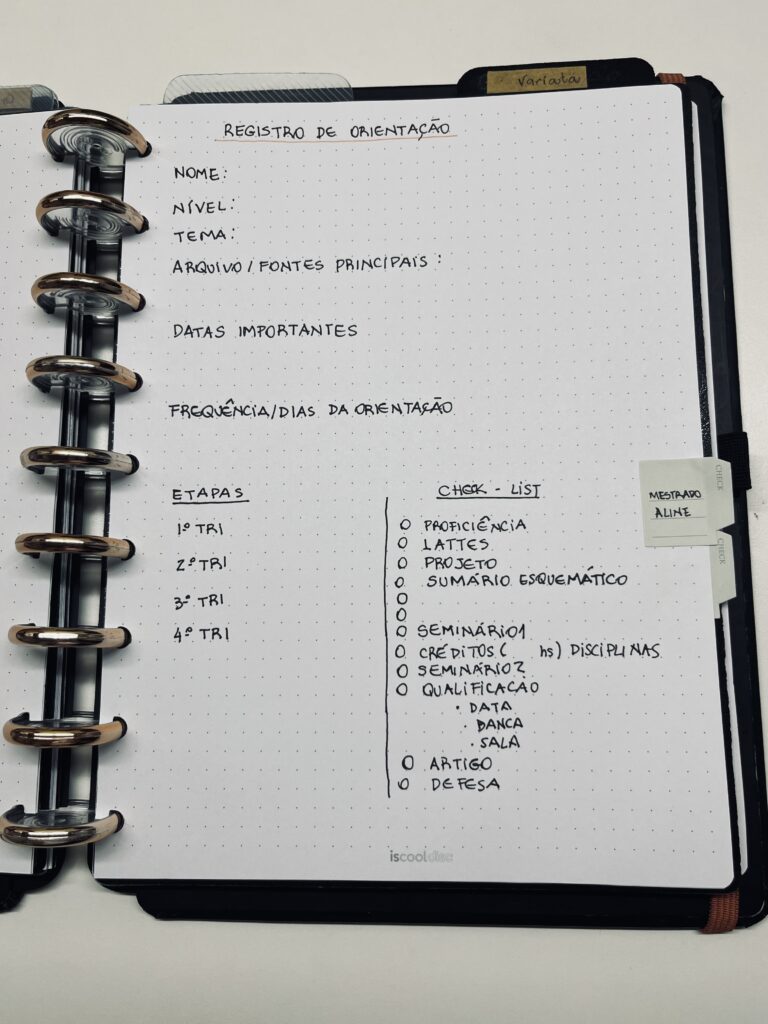 Variata
REGISTRO DE ORIENTAÇÃO
NOME:
NÍVEL:
TEMA:
ARQUIVO/FONTES PRINCIPAIS:
DATAS IMPORTANTES
FREQUÊNCIA/DIAS DA ORIENTAÇÃO
ETAPAS
1º TRI
2º TRI
3º TRI
4º TRI
CHECK - LIST
PROFICIÊNCIA
LATTES
PROJETO
SUMÁRIO ESQUEMÁTICO
SEMINÁRIO 1
CRÉDITOS ( hs) DISCIPLINAS
SEMINÁRIO 2
QUALIFICAÇAO
• DATA
• BANCA
• SALA
ARTIGO
DEFESA
CHECK
MESTRADO
ALINE
CHECK
iscooldisc